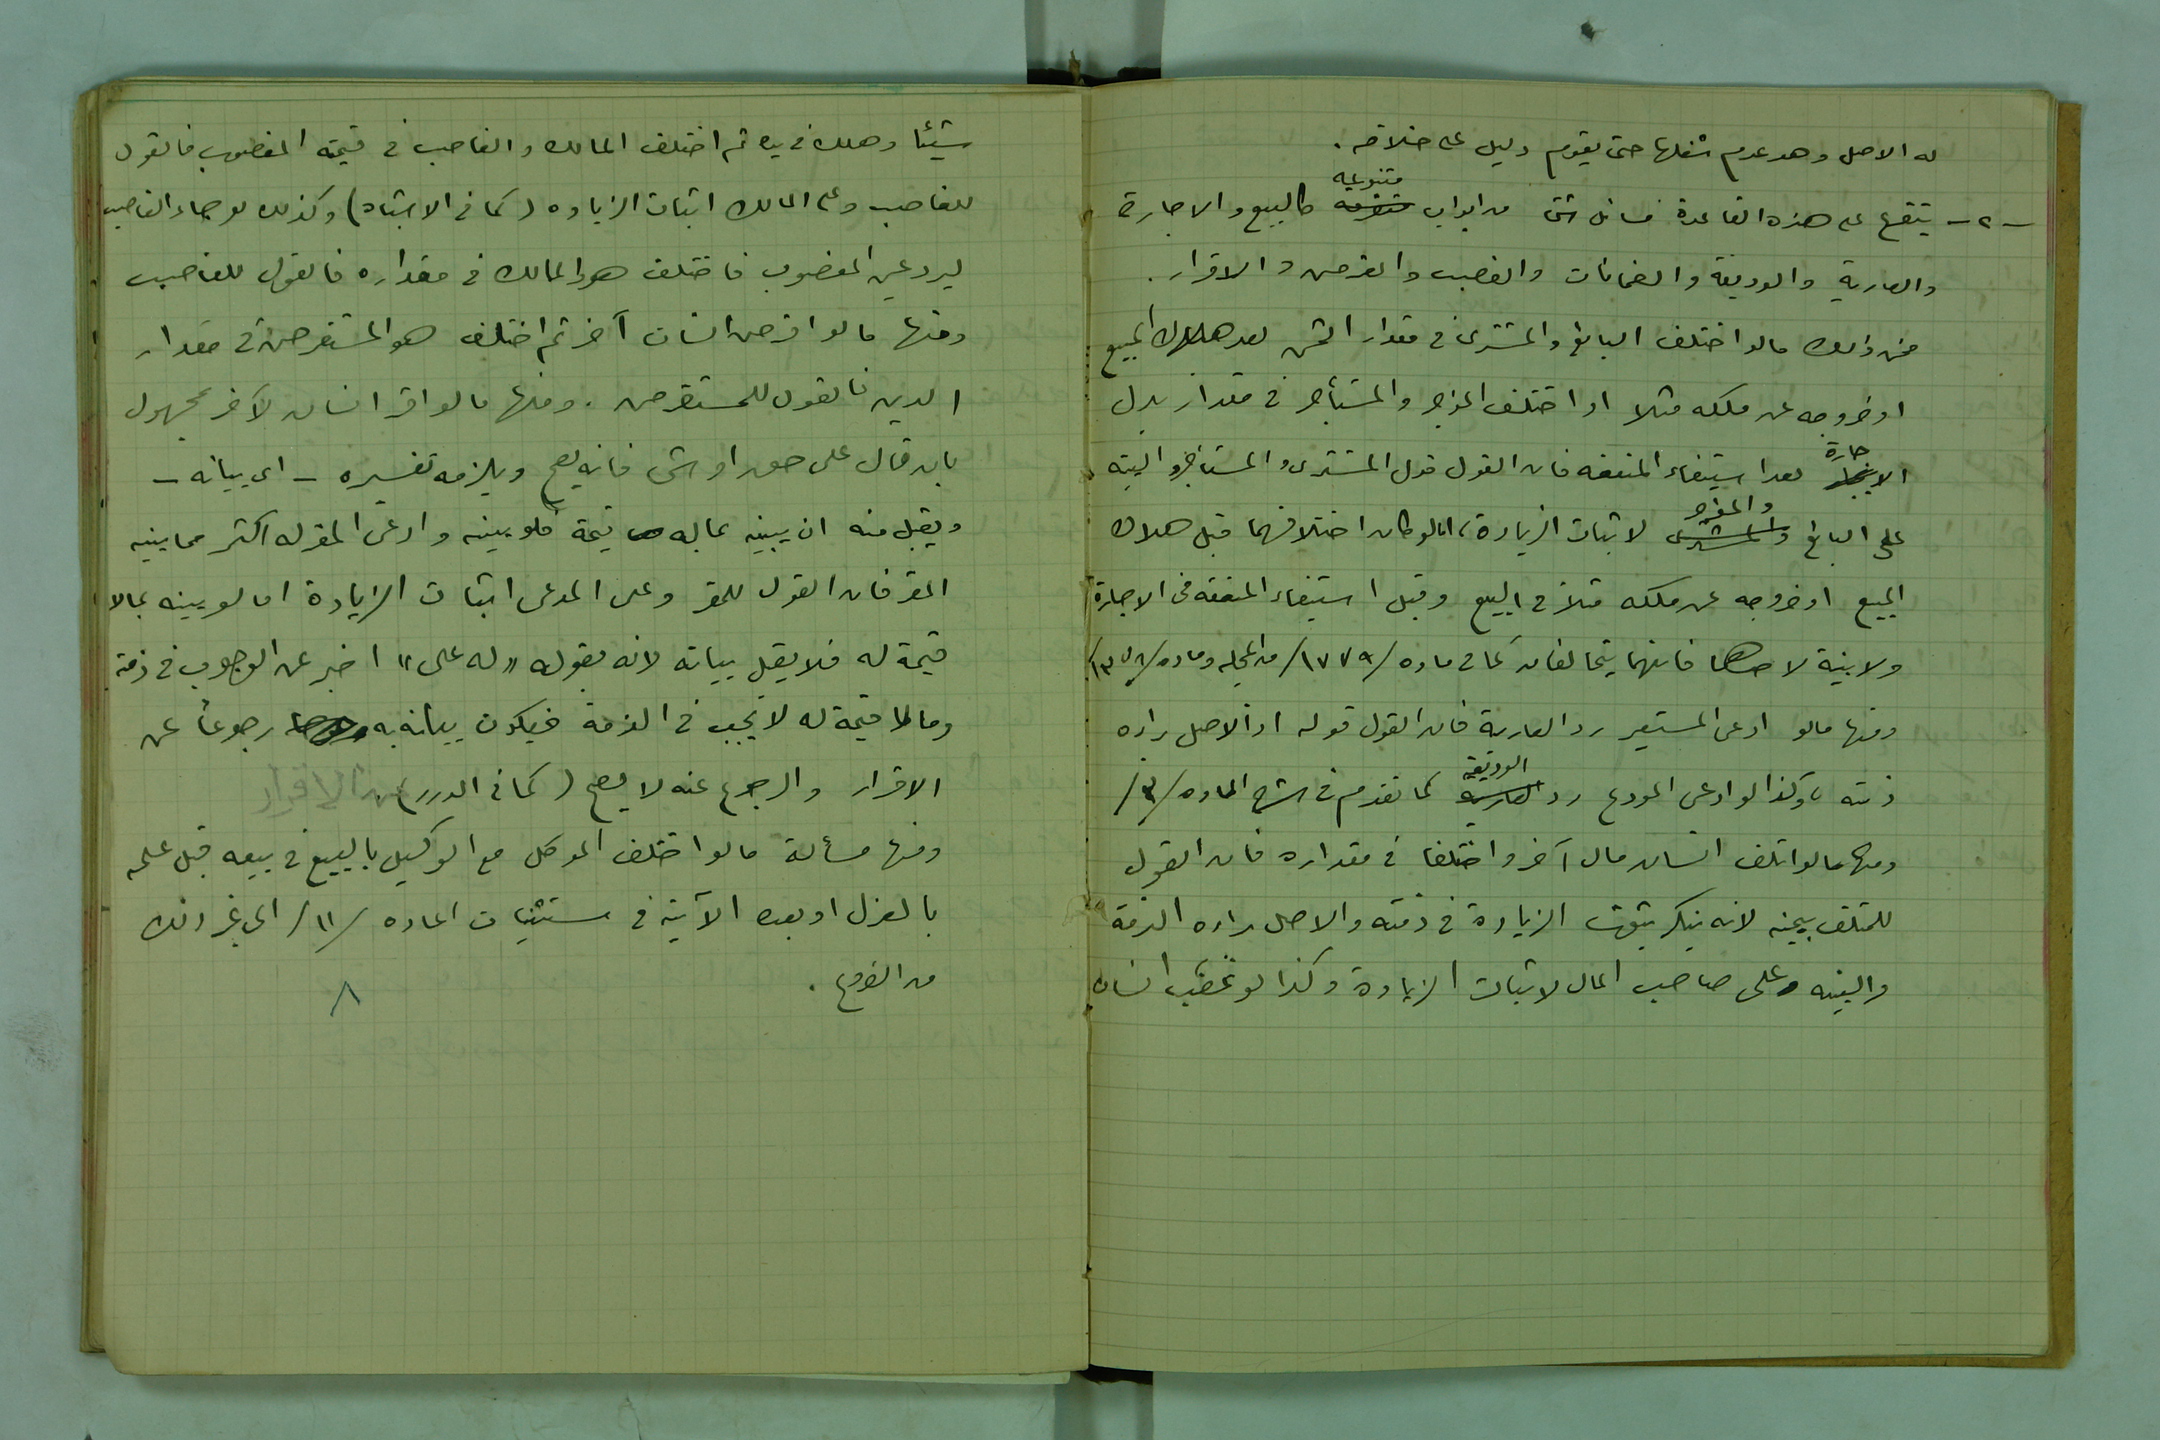 له الاصل وهو عدم شغلها حتى يقوم دليل على خلافه .
- ٢ - يتفرع على هذه القاعدة مسائل شتى من ابواب متنوعه كالبيع والاجارة
والعارية والوديعة والضمانات والغصب والقرض والاقرار .
فمن ذلك مالو اختلف البائع والمشترى في مقدار الثمن بعد هلاك المبيع
او خروجه عن ملكه مثلا او اختلف المؤجر والمستأجر في مقدار بدل
الاجارة بعد استيفاء المنفعه فان القول قول المشترى والمستأجر والبينه
على البائع والمؤجر لاثبات الزيادة، اما لو كان اختلافهما قبل هلاك
المبيع او خروجه عن ملكه مثلاً في البيع وقبل استيفاء المنفعه في الاجارة
ولا بينة لاحدهما فانهما يتحالفان كما في ماده /١٧٧٩/ من المجله وماده /١٣٥٨/
ومنها مالو ادعى المستعير رد العارية فان القول قوله اذ الاصل براءه
ذمته ، وكذا لو ادعى المودع رد الوديعة كما تقدم في شرح الماده /٣/
ومنها مالو اتلف انسان مال آخر واختلفا في مقداره فان القول
للمتلف بيمينه لانه ينكر ثبوت الزيادة في ذمته والاصل براءه الذمة
والبينه على صاحب المال لاثبات الزيادة وكذا لو غصب انسان
شيئا وهلك في يده ثم اختلف المالك والغاصب في قيمة المغصوب فالقول
للغاصب وعلى المالك اثبات الزياده (كما في الاشباه) وكذلك لو جاء الغاصب
ليرد عين المغصوب فاختلف هو والمالك في مقداره فالقول للغاصب
ومنها مالو اقرض انسان آخر ثم اختلف هو والمستقرض في مقدار
الدين فالقول للمستقرض . ومنها مالو اقر انسان لآخر بمجهول
بان قال على حق او شئ فانه يصح ويلزمه تفسيره - اى بيانه -
ويقبل منه ان يبينه بماله قيمة فلو بينه وادعى المقر له اكثر مما بينه
المقر فان القول للمقر وعلى المدعى اثبات الزيادة اما لو بينه بمالا
قيمة له فلا يقبل بيانه لانه بقوله «له على» اخبر عن الوجوب في ذمته
ومالا قيمة له لا يجب في الذمة فيكون بيانه به رجوعاً عن
الاقرار والرجوع عنه لا يصح (كما في الدرر) . الاقرار
ومنها مسألة مالو اختلف الموكل مع الوكيل بالبيع في بيعه قبل علمه
بالعزل او بعده الآتية في مستثنيات الماده /١١/ الى غير ذلك
من الفروع .
٨